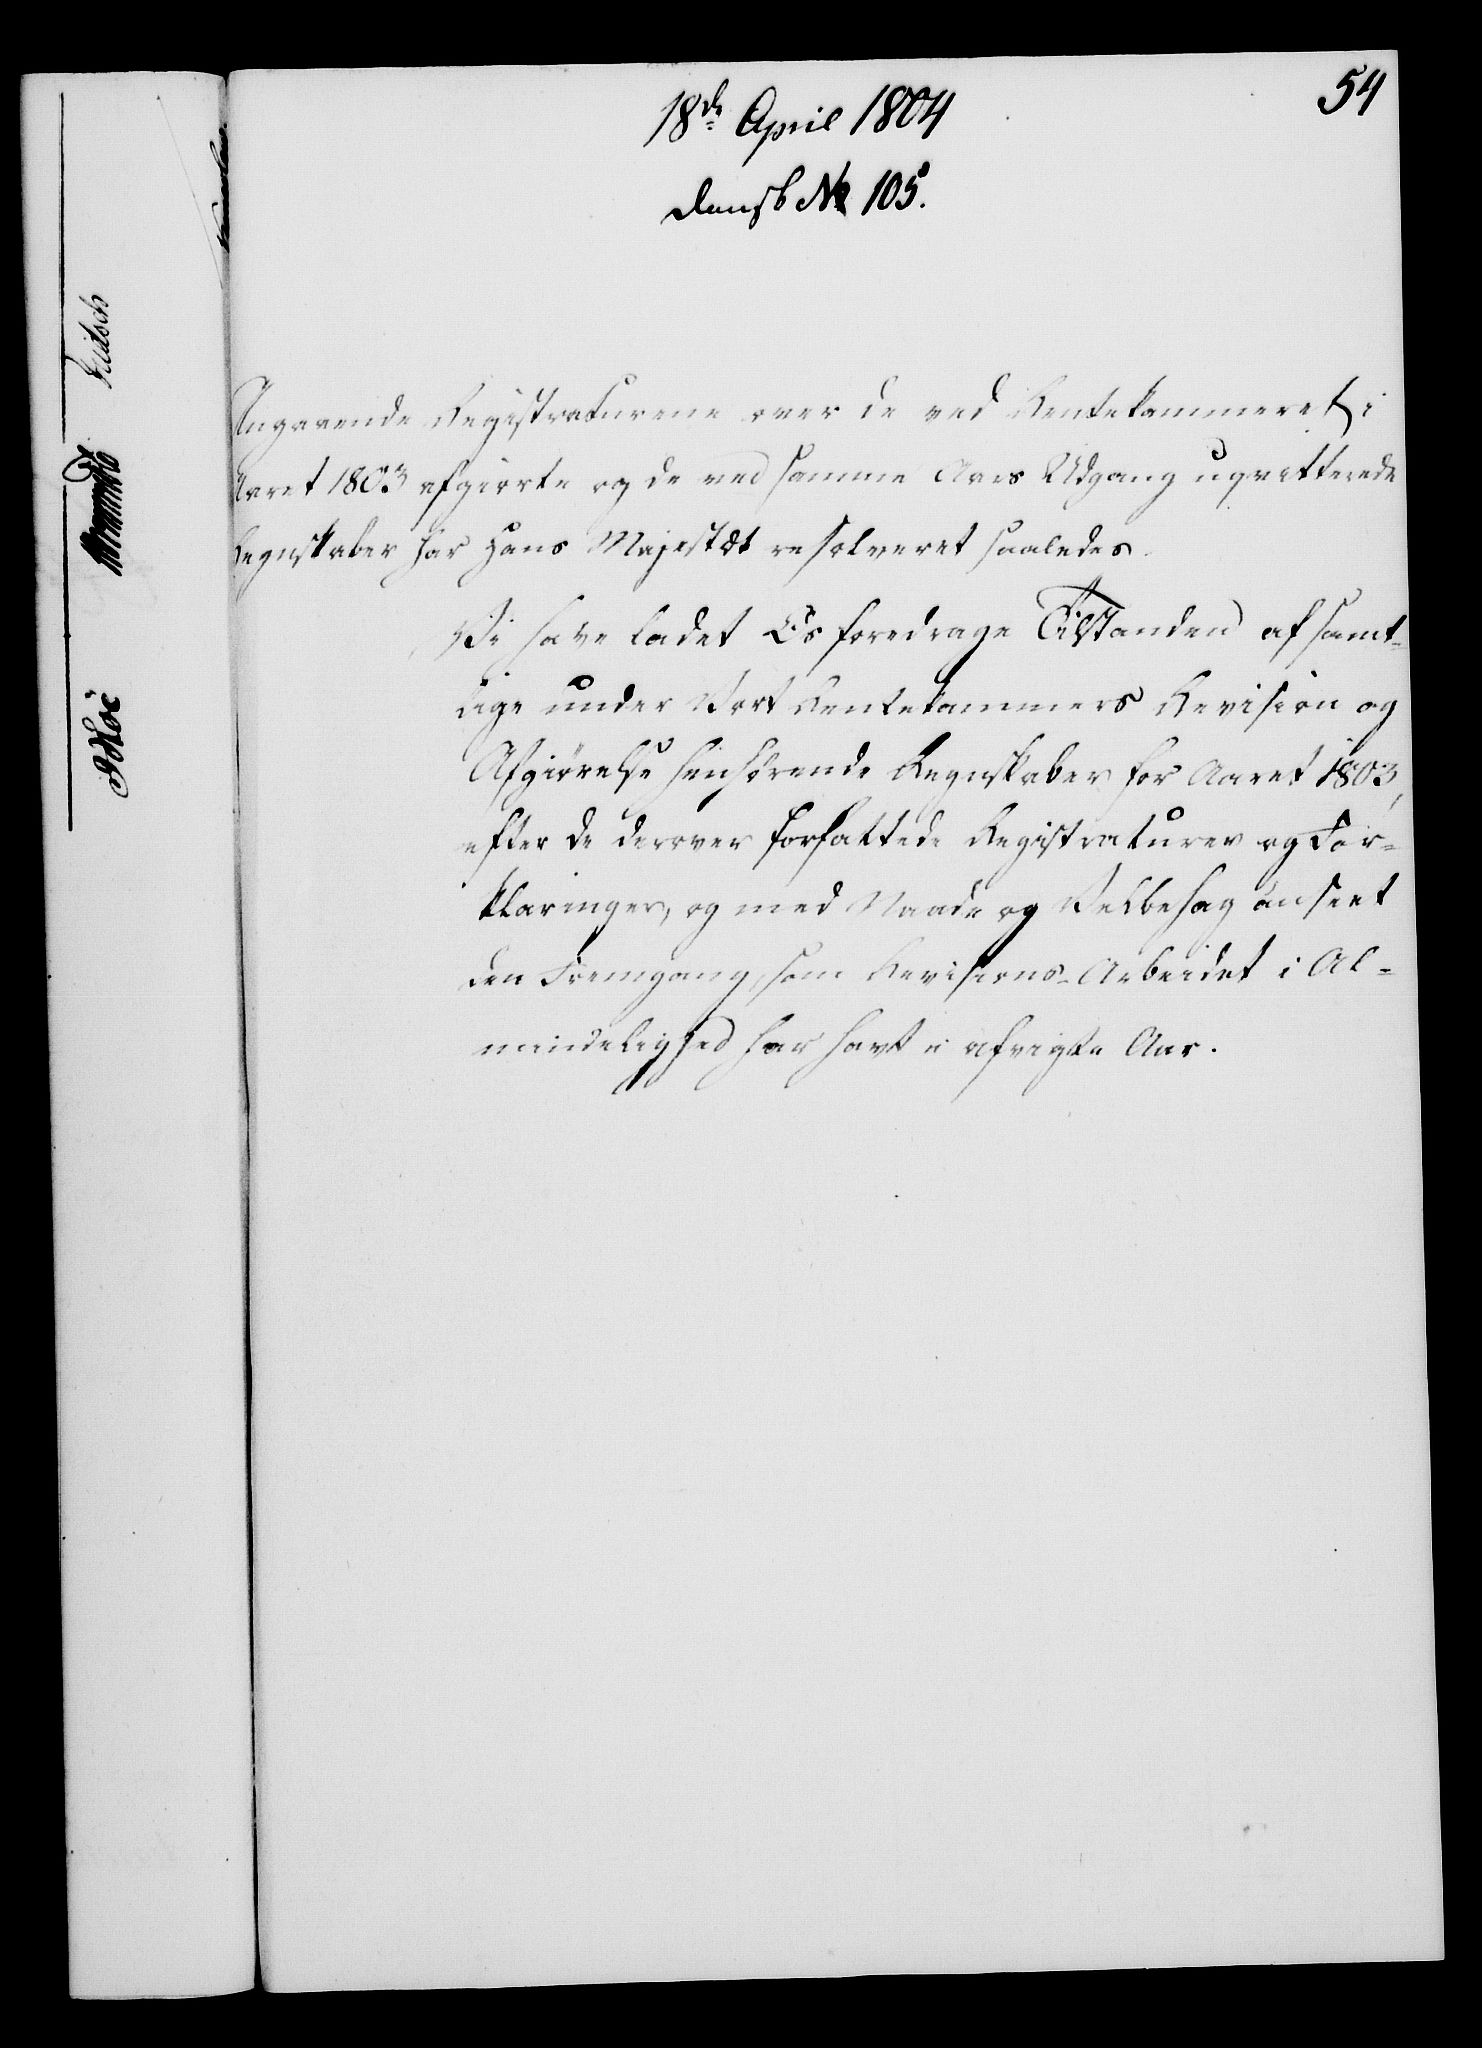 54
18de April 1804
Dansk No 105.
Angaaende Registraturene over de ved Rentekammeret i
Aaret 1803 afgiorte og de ved samme Aars Udgang uqvitterede
Regnskaber har Hans Majestæt resolveret saaledes.
Vi have ladet Os foredrage Tilstanden af samt-
lige under Vort Rentekammers Revision og
Afgiørelse henhørende Regnskaber for Aaret 1803,
efter de derover forfattede Registraturer og For-
klaringer, og med Naade og Velbehag anseet
den Fremgang, som Revisions-Arbeidet i Al-
mindelighed har havt i afvigte Aar.
Fritsch